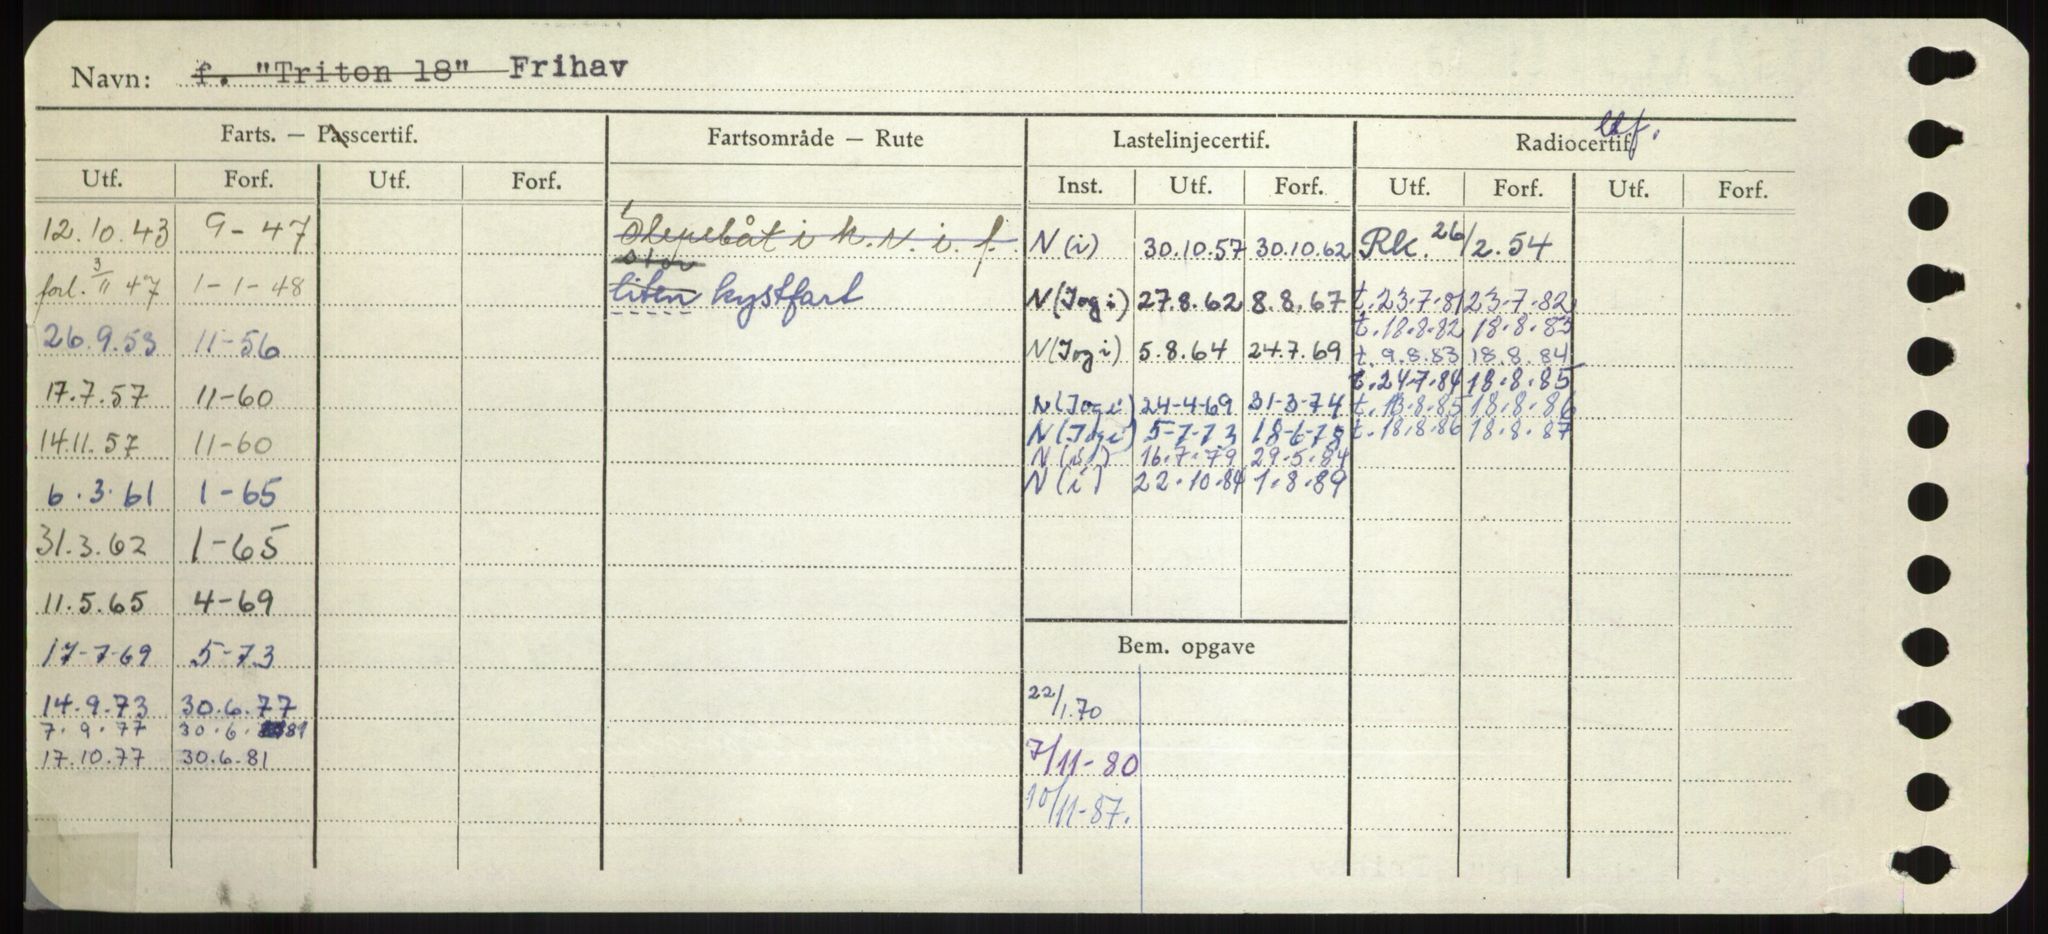 Navn: f. "Triton 18" Frihav
Farts. — Passcertif. Fartsområde — Rute Lastelinjecertif. Radiocertif.
Utf. Forf. Utf. Forf. Inst. Utf. Forf. Utf. Forf. Utf. Forf.
12.10.43 9-47 Slepebåt i N. i. f. N (i) 30.10.57 30.10.62 Rk. 26/2.54
stor
forl. 3/11 47 1-1-48 liten kystfart N (J og i) 27.8.62 8.8.67 t. 23.7.81 23.7.82
t. 18.8.82 18.8.83
26.9.53 11-56 N (J og i) 5.8.64 24.7.69 t. 9.8.83 18.8.84
t. 24.7.84 18.8.85
17.7.57 11-60 N (J og i) 24-4-69 31-3-74 t. 13.8.85 18.8.86
14.11.57 11-60 N (J og i) 5-7-73 18-6-78 t. 18.8.86 18.8.87
N (i) 16.7.79 29.5.84
6.3.61 1-65 N (i) 22.10.84 1.8.89
31.3.62 1-65
11.5.65 4-69
17-7-69 5-73 Bem. opgave
14.9.73 30.6.77 22/1.70
7.9.77 30.6.81
17.10.77 30.6.81 7/11-80
10/11-87.